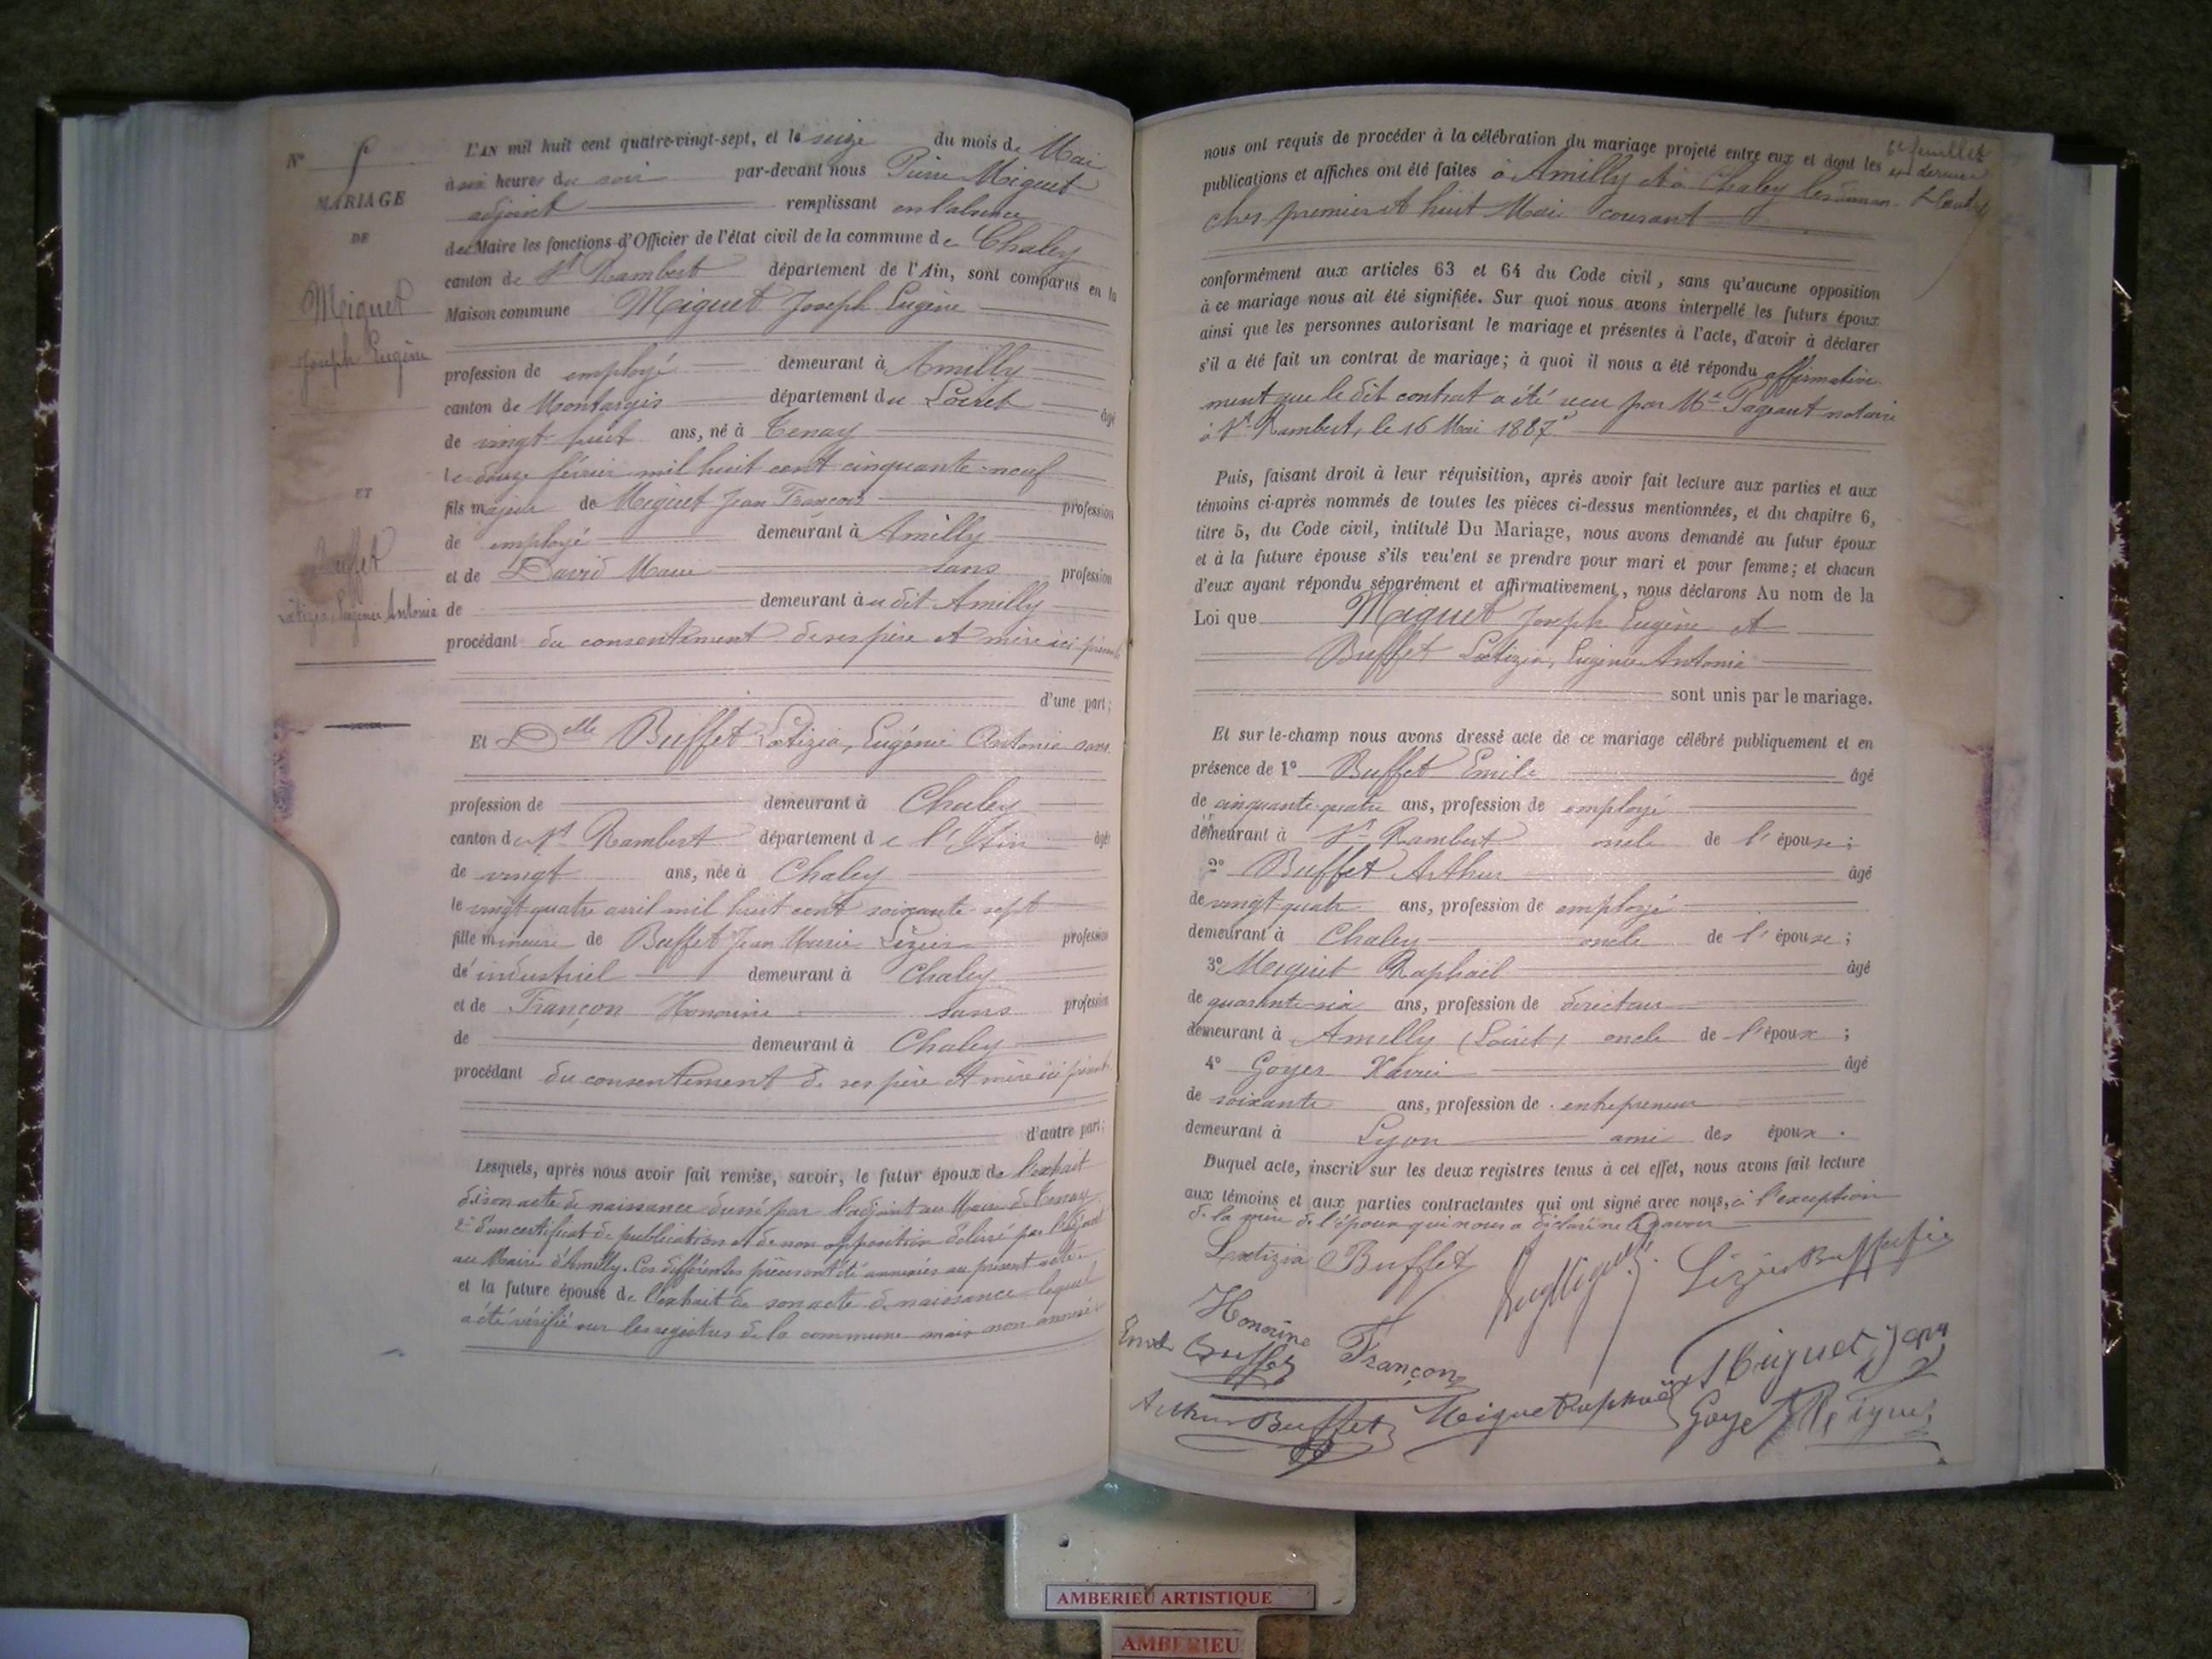 N° 5
MARIAGE
DE
Miguet
Joseph Eugène
ET
Buffet
Lætizia, Eugénie Antonia
L'AN mil huit cent quatre-vingt-sept, et le seize du mois de Mai
à six heures du soir par-devant nous Pierre Miguet
adjoint remplissant en l'absence
du Maire les fonctions d'Officier de l'état civil de la commune de Chaley
canton de St Rambert département de l'Ain, sont comparus en la
Maison commune Miguet Joseph Eugène
profession de employé demeurant à Amilly
canton de Montargis département du Loiret âgé
de vingt-huit ans, né à Tenay
le douze février mil huit cent cinquante-neuf
fils majeur de Miguet Jean François profession
de employé demeurant à Amilly
et de David Marie sans profession
de demeurant à u dit Amilly
procédant du consentement de ses père et mère ici présents
d'une part;
Et Delle Buffet Lætizia, Eugénie Antonia sans
profession de demeurant à Chaley
canton de St Rambert département de l'Ain âgée
de vingt ans, née à Chaley
le vingt quatre avril mil huit cent soixante-sept
fille mineure de Buffet Jean Marie Lézier profession
d'industriel demeurant à Chaley
et de Françon Honorine sans profession
de demeurant à Chaley
procédant du consentement de ses père et mère ici présents
d'autre part;
Lesquels, après nous avoir fait remise, savoir, le futur époux de l'extrait
de son acte de naissance donné par l'adjoint au Maire de Tenay
2° d'un certificat de publication et de non opposition délivré par l'adjoint
au Maire d'Amilly. Ces différentes pièces ont été annexées au présent acte
et la future épouse de l'extrait de son acte de naissance lequel
a été vérifié sur les registres de la commune mais non annexé
6e feuillet
et dernier
nous ont requis de procéder à la célébration du mariage projeté entre eux et dont les
publications et affiches ont été faites à Amilly et à Chaley les diman-
ches premier et huit Mai courant
conformément aux articles 63 et 64 du Code civil, sans qu'aucune opposition
à ce mariage nous ait été signifiée. Sur quoi nous avons interpellé les futurs époux
ainsi que les personnes autorisant le mariage et présentes à l'acte, d'avoir à déclarer
s'il a été fait un contrat de mariage; à quoi il nous a été répondu affirmative-
ment que le dit contrat a été reçu par Me Pageaut notaire
à St Rambert, le 16 Mai 1887
Puis, faisant droit à leur réquisition, après avoir fait lecture aux parties et aux
témoins ci-après nommés de toutes les pièces ci-dessus mentionnées, et du chapitre 6,
titre 5, du Code civil, intitulé Du Mariage, nous avons demandé au futur époux
et à la future épouse s'ils veulent se prendre pour mari et pour femme; et chacun
d'eux ayant répondu séparément et affirmativement, nous déclarons Au nom de la
Loi que Miguet Joseph Eugène et
Buffet Lætizia, Eugénie Antonia
sont unis par le mariage.
Et sur-le-champ nous avons dressé acte de ce mariage célébré publiquement et en
présence de 1° Buffet Emile âgé
de cinquante-quatre ans, profession de employé
demeurant à St Rambert oncle de l'épouse;
2° Buffet Arthur âgé
de vingt-quatre ans, profession de employé
demeurant à Chaley oncle de l'épouse;
3° Miguet Raphaël âgé
de quarante-six ans, profession de directeur
demeurant à Amilly (Loiret) oncle de l'époux;
4° Goyer Xavier âgé
de soixante ans, profession de entrepreneur
demeurant à Lyon ami des époux.
Duquel acte, inscrit sur les deux registres tenus à cet effet, nous avons fait lecture
aux témoins et aux parties contractantes qui ont signé avec nous, à l'exception
de la mère de l'époux qui nous a déclaré ne le savoir
Lætizia Buffet Lézier Buffet
Honorine
Françon
Emile
Buffet
Miguet Jean
Arthur Buffet Miguet Raphaël Goyer
AMBERIEU ARTISTIQUE
AMBERIEU